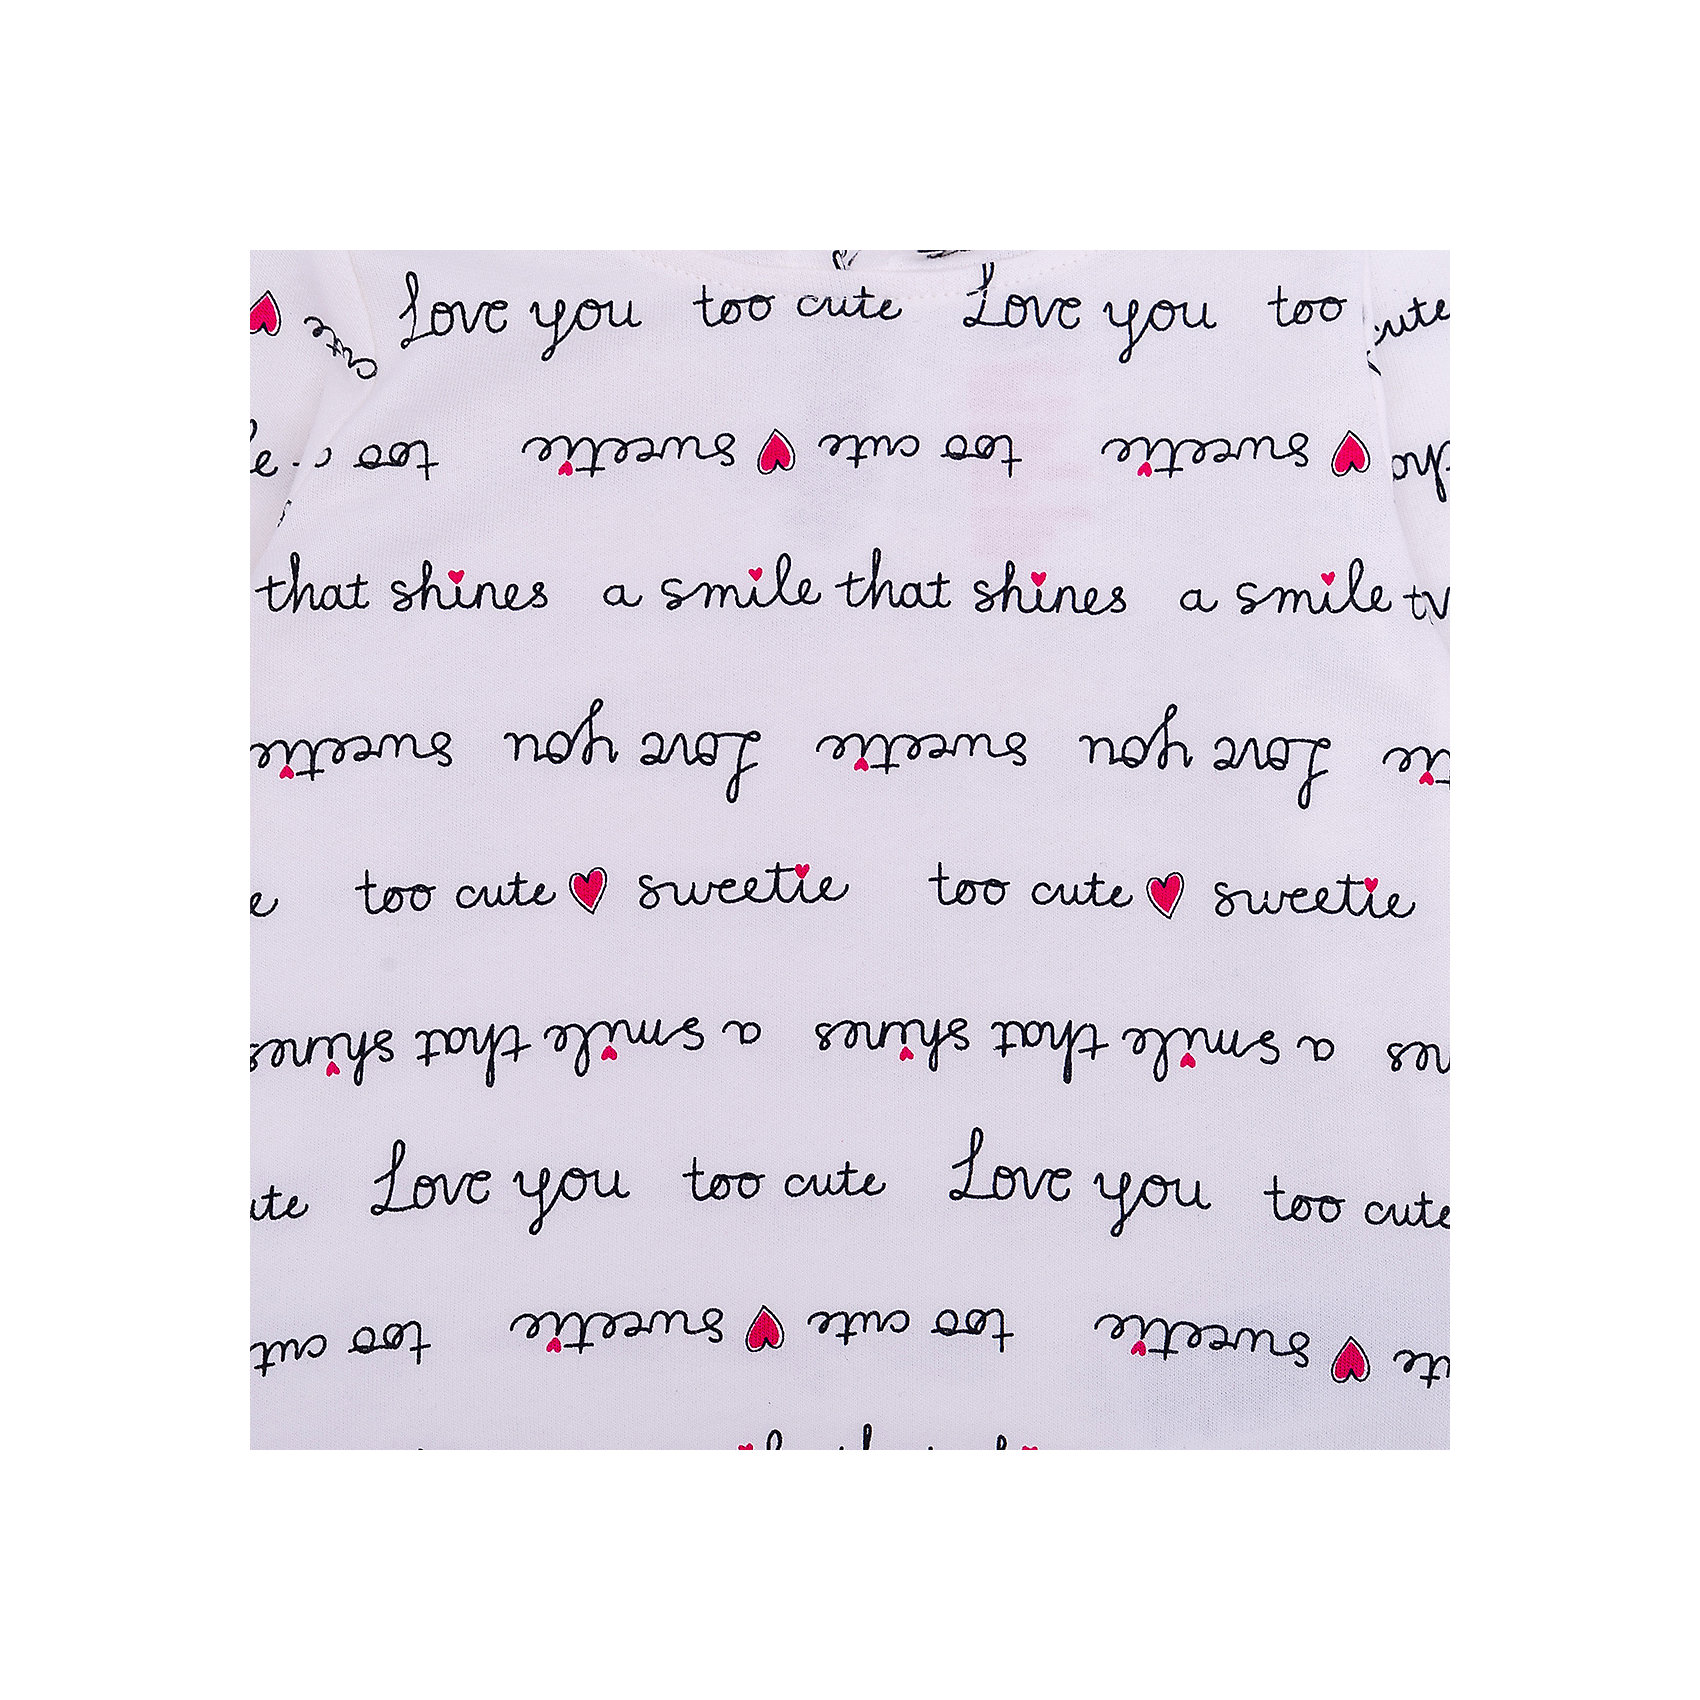 cute Love you too cute Love you too cute
too cute sweetie too cute sweetie
that shines a smile that shines a smile
Love you sweetie Love you sweetie
too cute sweetie too cute sweetie
shines a smile that shines a smile that shines
Love you too cute Love you too cute
sweetie too cute sweetie too cut